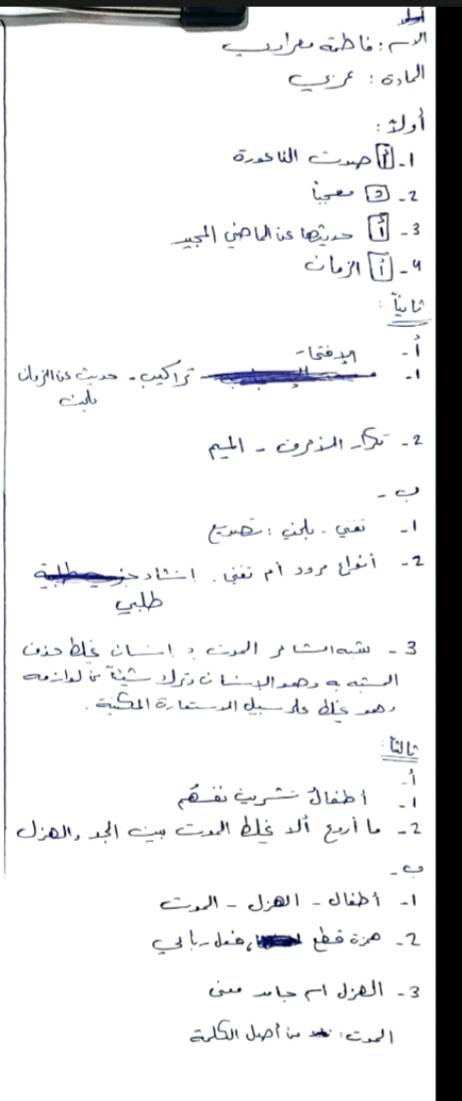 الاسم: فاطمة معراوي
المادة: عربي
أولاً:
1- أ صوت الناعورة
2- د معجباً
3- أ حديثها عن الماضي المجيد
4- أ الزمان
ثانياً:
أ-
1- تراكيب - حديث عن الزمان
2- تكرار الأحرف - الميم
ب-
1- تغني - : تصريع
2- أنواع مرود أم تغني. إنشاء
طلبي
3- شبه الشاعر الموت بإنسان غلط حذف
المشبه به وهو الإنسان وترك شيئاً من لوازمه
وهو غلط على سبيل الاستعارة المكنية.
ثالثاً:
أ-
1- أطفال تشرين نفسهم
2- ما أروع ألا غلط الموت بين الجد والهزل
ب-
1- أطفال - الهزل - الموت
2- همزة قطع، فعل رباعي
3- الهزل اسم جامد معنى
الموت: من أصل الكلمة